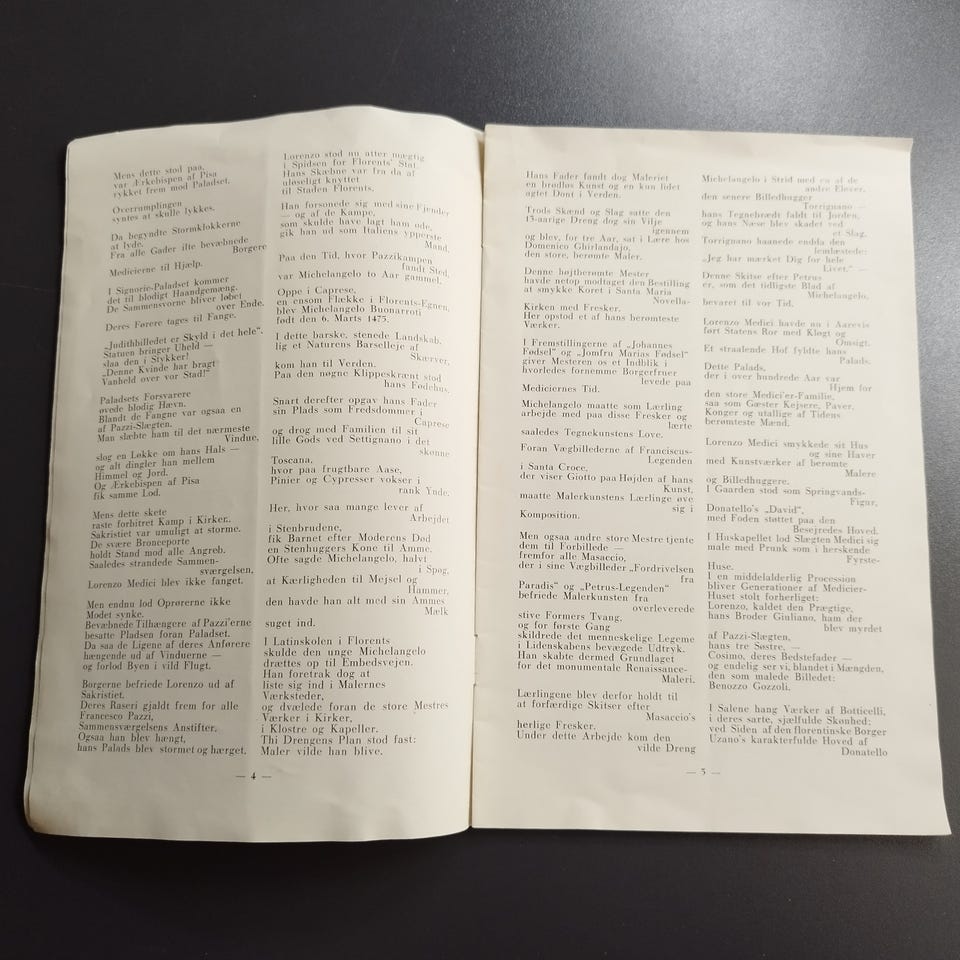 Mens dette stod paa,
var Ærkebispen af Pisa
rykket frem mod Paladset.
Overrumplingen
syntes at skulle lykkes.
Da begyndte Stormklokkerne
at lyde.
Fra alle Gader ilte bevæbnede
Borgere
Medicierne til Hjælp.
I Signorie-Paladset kommer
det til blodigt Haandgemæng.
De Sammensvorne bliver løbet
over Ende.
Deres Førere tages til Fange.
„Judithbilledet er Skyld i det hele“.
Statuen bringer Uheld —
slaa den i Stykker!
„Denne Kvinde har bragt
Vanheld over vor Stad!“
Paladsets Forsvarere
øvede blodig Hævn.
Blandt de Fangne var ogsaa en
af Pazzi-Slægten.
Man slæbte ham til det nærmeste
Vindue,
slog en Løkke om hans Hals —
og alt dingler han mellem
Himmel og Jord.
Og Ærkebispen af Pisa
fik samme Lod.
Mens dette skete
raste forbitret Kamp i Kirken.
Sakristiet var umuligt at storme.
De svære Bronceporte
holdt Stand mod alle Angreb.
Saaledes strandede Sammen-
sværgelsen,
Lorenzo Medici blev ikke fanget.
Men endnu lod Oprørerne ikke
Modet synke.
Bevæbnede Tilhængere af Pazzi'erne
besatte Pladsen foran Paladset.
Da saa de Ligene af deres Anførere
hængende ud af Vinduerne —
og forlod Byen i vild Flugt.
Borgerne befriede Lorenzo ud af
Sakristiet.
Deres Raseri gjaldt frem for alle
Francesco Pazzi,
Sammensværgelsens Anstifter.
Ogsaa han blev hængt,
hans Palads blev stormet og hærget.
Lorenzo stod nu atter mægtig
i Spidsen for Florents' Stat.
Hans Skæbne var fra da af
uløseligt knyttet
til Staden Florents.
Han forsonede sig med sine Fjender
— og af de Kampe,
som skulde have lagt ham øde,
gik han ud som Italiens ypperste
Mand.
Paa den Tid, hvor Pazzikampen
fandt Sted,
var Michelangelo to Aar gammel.
Oppe i Caprese,
en ensom Flække i Florents-Egnen,
blev Michelangelo Buonarroti
født den 6. Marts 1475.
I dette barske, stenede Landskab,
lig et Naturens Barselleje af
Skærver,
kom han til Verden.
Paa den nøgne Klippeskrænt stod
hans Fødehus.
Snart derefter opgav hans Fader
sin Plads som Fredsdommer i
Caprese
og drog med Familien til sit
lille Gods ved Settignano i det
skønne
Toscana,
hvor paa frugtbare Aase,
Pinier og Cypresser vokser i
rank Ynde.
Her, hvor saa mange lever af
Arbejdet
i Stenbrudene,
fik Barnet efter Moderens Død
en Stenhuggers Kone til Amme.
Ofte sagde Michelangelo, halvt
i Spøg,
at Kærligheden til Mejsel og
Hammer,
den havde han alt med sin Ammes
Mælk
suget ind.
I Latinskolen i Florents
skulde den unge Michelangelo
drættes op til Embedsvejen.
Han foretrak dog at
liste sig ind i Malernes
Værksteder,
og dvælede foran de store Mestres
Værker i Kirker,
i Klostre og Kapeller.
Thi Drengens Plan stod fast:
Maler vilde han blive.
— 4 —
Hans Fader fandt dog Maleriet
en brødløs Kunst og en kun lidet
agtet Dont i Verden.
Trods Skænd og Slag satte den
13-aarige Dreng dog sin Vilje
igennem
og blev, for tre Aar, sat i Lære hos
Domenico Ghirlandajo,
den store, berømte Maler.
Denne højtberømte Mester
havde netop modtaget den Bestilling
at smykke Koret i Santa Maria
Novella-
Kirken med Fresker.
Her opstod et af hans berømteste
Værker.
I Fremstillingerne af „Johannes
Fødsel“ og „Jomfru Marias Fødsel“
giver Mesteren os et Indblik i
hvorledes fornemme Borgerfruer
levede paa
Mediciernes Tid.
Michelangelo maatte som Lærling
arbejde med paa disse Fresker og
lærte
saaledes Tegnekunstens Love.
Foran Vægbillederne af Franciscus-
Legenden
i Santa Croce,
der viser Giotto paa Højden af hans
Kunst,
maatte Malerkunstens Lærlinge øve
sig i
Komposition.
Men ogsaa andre store Mestre tjente
dem til Forbillede —
fremfor alle Masaccio,
der i sine Vægbilleder „Fordrivelsen
fra
Paradis“ og „Petrus-Legenden“
befriede Malerkunsten fra
overleverede
stive Formers Tvang,
og for første Gang
skildrede det menneskelige Legeme
i Lidenskabens bevægede Udtryk.
Han skabte dermed Grundlaget
for det monumentale Renaissance-
Maleri.
Lærlingene blev derfor holdt til
at forfærdige Skitser efter
Masaccio's
herlige Fresker.
Under dette Arbejde kom den
vilde Dreng
Michelangelo i Strid med en af de
andre Elever,
den senere Billedhugger
Torrignano —
hans Tegnebrædt faldt til Jorden,
og hans Næse blev skadet ved
et Slag.
Torrignano haanede endda den
lemlæstede:
„Jeg har mærket Dig for hele
Livet.“ —
Denne Skitse efter Petrus
er, som det tidligste Blad af
Michelangelo,
bevaret til vor Tid.
Lorenzo Medici havde nu i Aarevis
ført Statens Ror med Kløgt og
Omsigt.
Et straalende Hof fyldte hans
Palads.
Dette Palads,
der i over hundrede Aar var
Hjem for
den store Medici'er-Familie,
saa som Gæster Kejsere, Paver,
Konger og utallige af Tidens
berømteste Mænd.
Lorenzo Medici smykkede sit Hus
og sine Haver
med Kunstværker af berømte
Malere
og Billedhuggere.
I Gaarden stod som Springvands-
Figur,
Donatello's „David“,
med Foden støttet paa den
Besejredes Hoved.
I Huskapellet lod Slægten Medici sig
male med Prunk som i herskende
Fyrste-
Huse.
I en middelalderlig Procession
bliver Generationer af Medicier-
Huset stolt forherliget:
Lorenzo, kaldet den Prægtige,
hans Broder Giuliano, ham der
blev myrdet
af Pazzi-Slægten,
hans tre Søstre, —
Cosimo, deres Bedstefader —
og endelig ser vi, blandet i Mængden,
den som malede Billedet:
Benozzo Gozzoli.
I Salene hang Værker af Botticelli,
i deres sarte, sjælfulde Skønhed;
ved Siden af den florentinske Borger
Uzano's karakterfulde Hoved af
Donatello
— 5 —